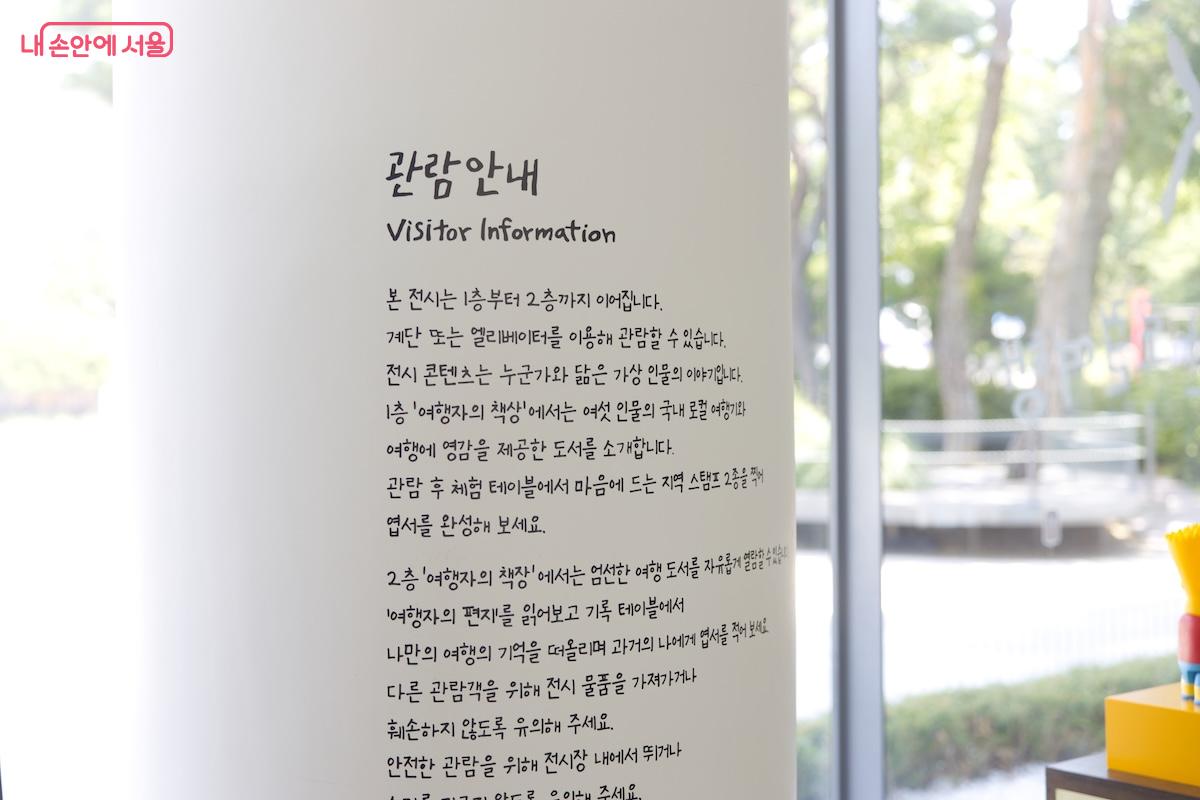 내 손안에 서울
관람안내
Visitor Information
본 전시는 1층부터 2층까지 이어집니다.
계단 또는 엘리베이터를 이용해 관람할 수 있습니다.
전시 콘텐츠는 누군가와 닮은 가상 인물의 이야기입니다.
1층 '여행자의 책상'에서는 여섯 인물의 국내 로컬 여행기와
여행에 영감을 제공한 도서를 소개합니다.
관람 후 체험 테이블에서 마음에 드는 지역 스탬프 2종을 찍어
엽서를 완성해 보세요.
2층 '여행자의 책장'에서는 엄선한 여행 도서를 자유롭게 열람할 수 있습니다.
'여행자의 편지'를 읽어보고 기록 테이블에서
나만의 여행의 기억을 떠올리며 과거의 나에게 엽서를 적어 보세요.
다른 관람객을 위해 전시 물품을 가져가거나
훼손하지 않도록 유의해 주세요.
안전한 관람을 위해 전시장 내에서 뛰거나
않도록 유의해 주세요.